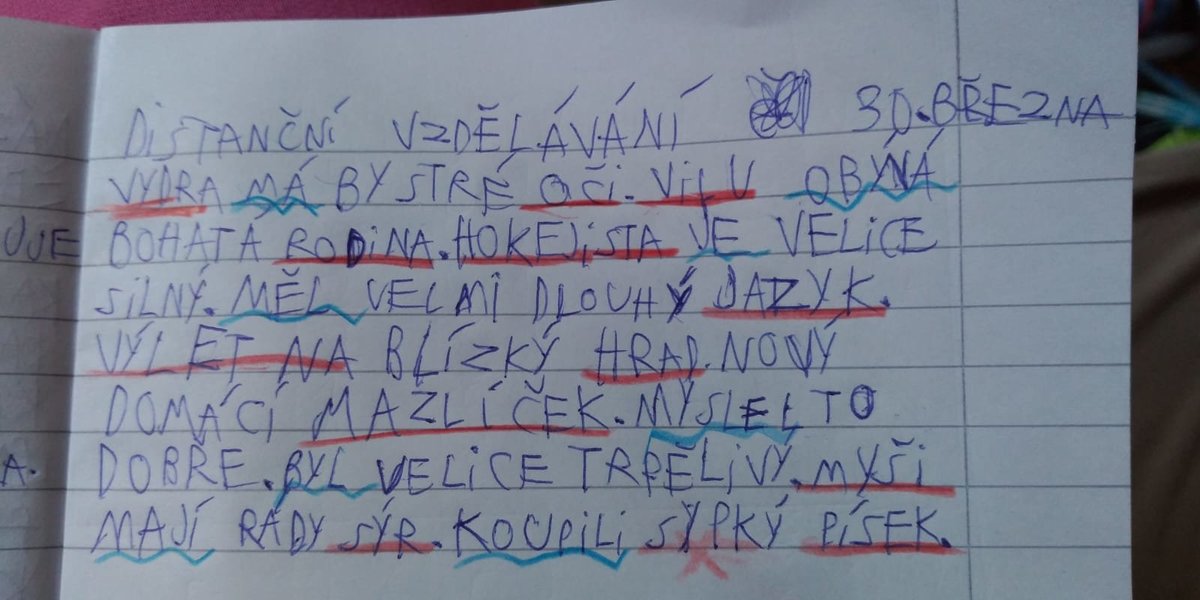 DISTANČNÍ VZDĚLÁVÁNÍ 30. BŘEZNA
VYDRA MÁ BYSTRÉ OČI. VILU OBÝVÁ
UJE BOHATÁ RODINA. HOKEJISTA JE VELICE
SILNÝ. MĚL VELMI DLOUHÝ JAZYK.
VÝLET NA BLÍZKÝ HRAD. NOVÝ
DOMÁCÍ MAZLÍČEK. MYSLEL TO
A. DOBŘE. BYL VELICE TRPĚLIVÝ. MYŠI
MAJÍ RÁDY SÝR. KOUPILI SYPKÝ PÍSEK.